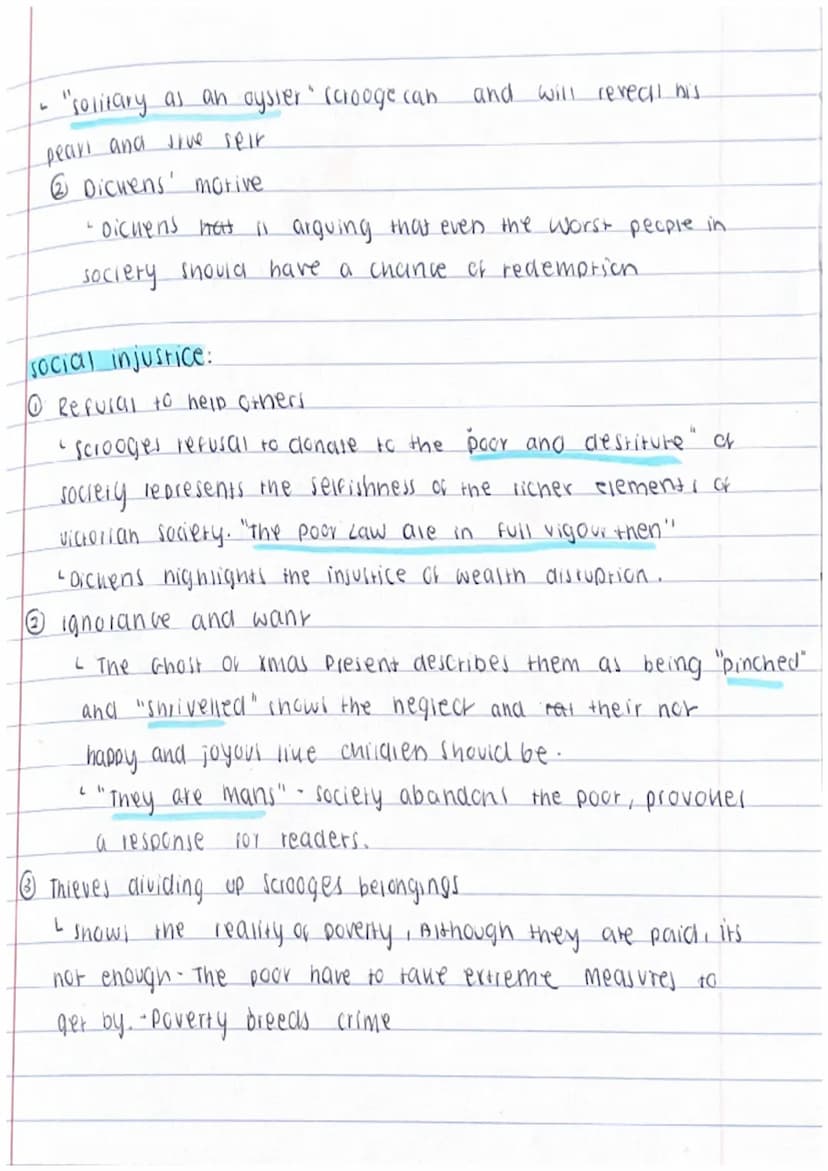 ↳ "solitary as an oyster" Scrooge can and will reveal his
pearl and true self
② Dickens' motive
↳ Dickens is arguing that even the worst people in
society should have a chance of redemption
social injustice:
① Refusal to help others
↳ Scrooges refusal to donate to the "poor and destitute" of
society represents the selfishness of the richer elements of
victorian society. "The poor Law are in full vigour then"
↳ Dickens highlights the injustice of wealth disruption.
② ignorance and want
↳ The Ghost of xmas Present describes them as being "pinched"
and "shrivelled" shows the neglect and their not
happy and joyous like children should be.
↳ "They are mans" - society abandons the poor, provokes
a response for readers.
③ Thieves dividing up Scrooges belongings
↳ Shows the reality of poverty, Although they are paid, its
not enough - The poor have to take extreme measures to
get by. - Poverty breeds crime